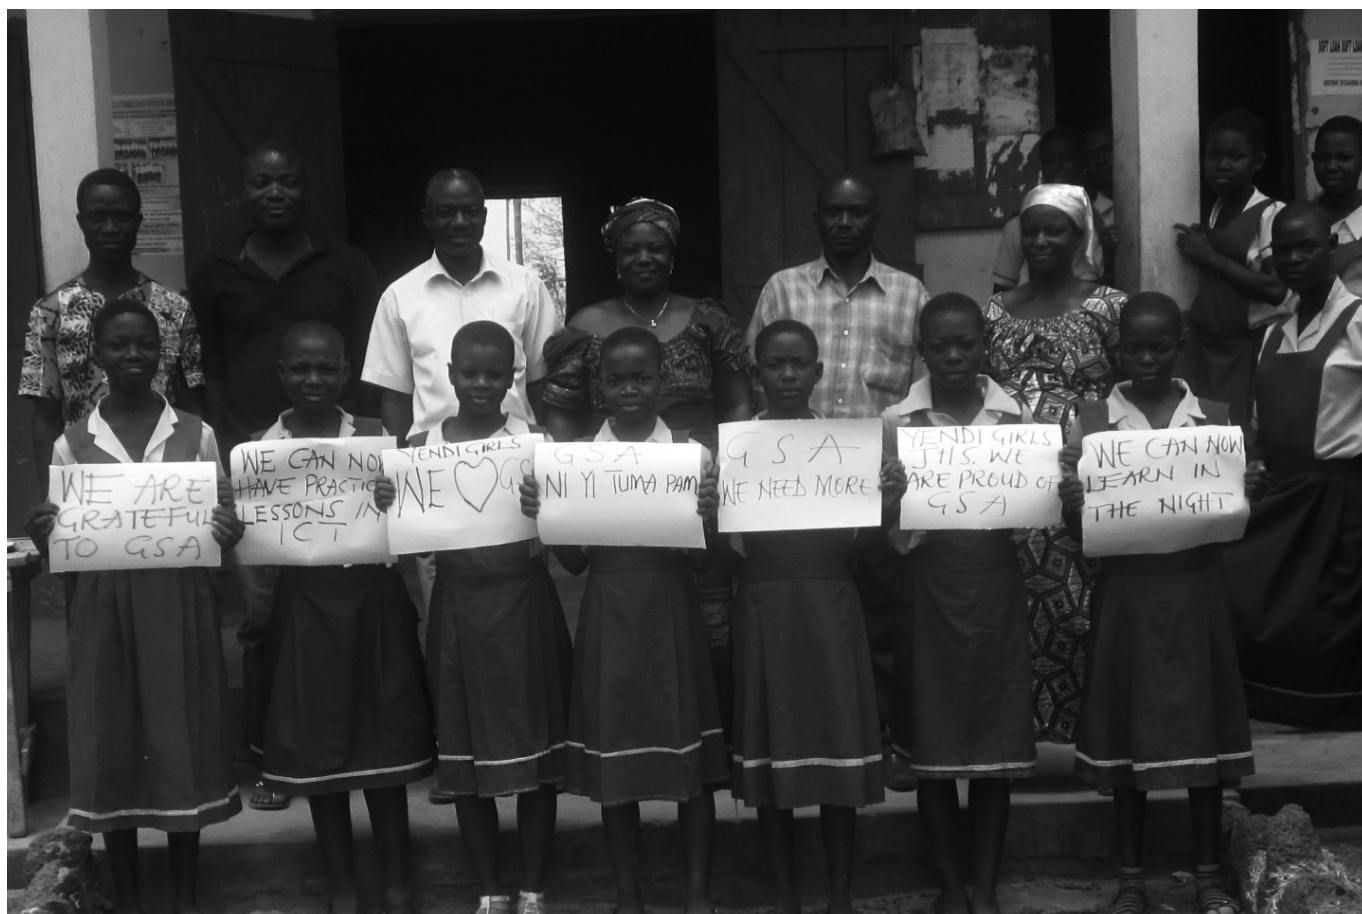 WE ARE
GRATEFUL
TO GSA
WE CAN NOW
HAVE PRACTIC
LESSONS IN
ICT
YENDI GIRLS
WE ♡ GS
GSA
NI YI TUMA PAM
GSA
WE NEED MORE
YENDI GIRLS
JHS. WE
ARE PROUD OF
GSA
WE CAN NOW
LEARN IN
THE NIGHT
SOFT LOAN SOFT LOAN